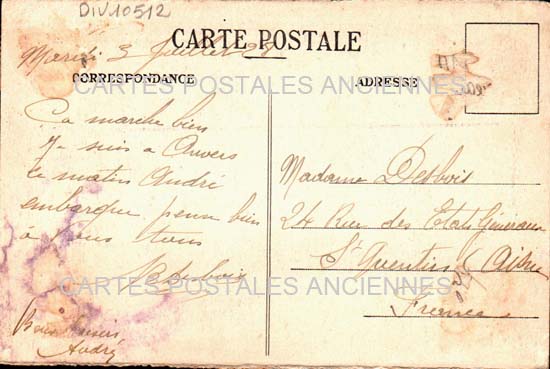 DIV10512
CARTE POSTALE
Mardi 3 Juillet 28
CORRESPONDANCE
ADRESSE
CARTES POSTALES ANCIENNES
Ca marche bien
Je suis a Anvers
ce matin André
embarque pense bien
à vous tous
Bons baisers
André
Madame Desbois
24 Rue des Etats Généraux
St Quentin (Aisne
France
CARTES POSTALES ANCIENNES